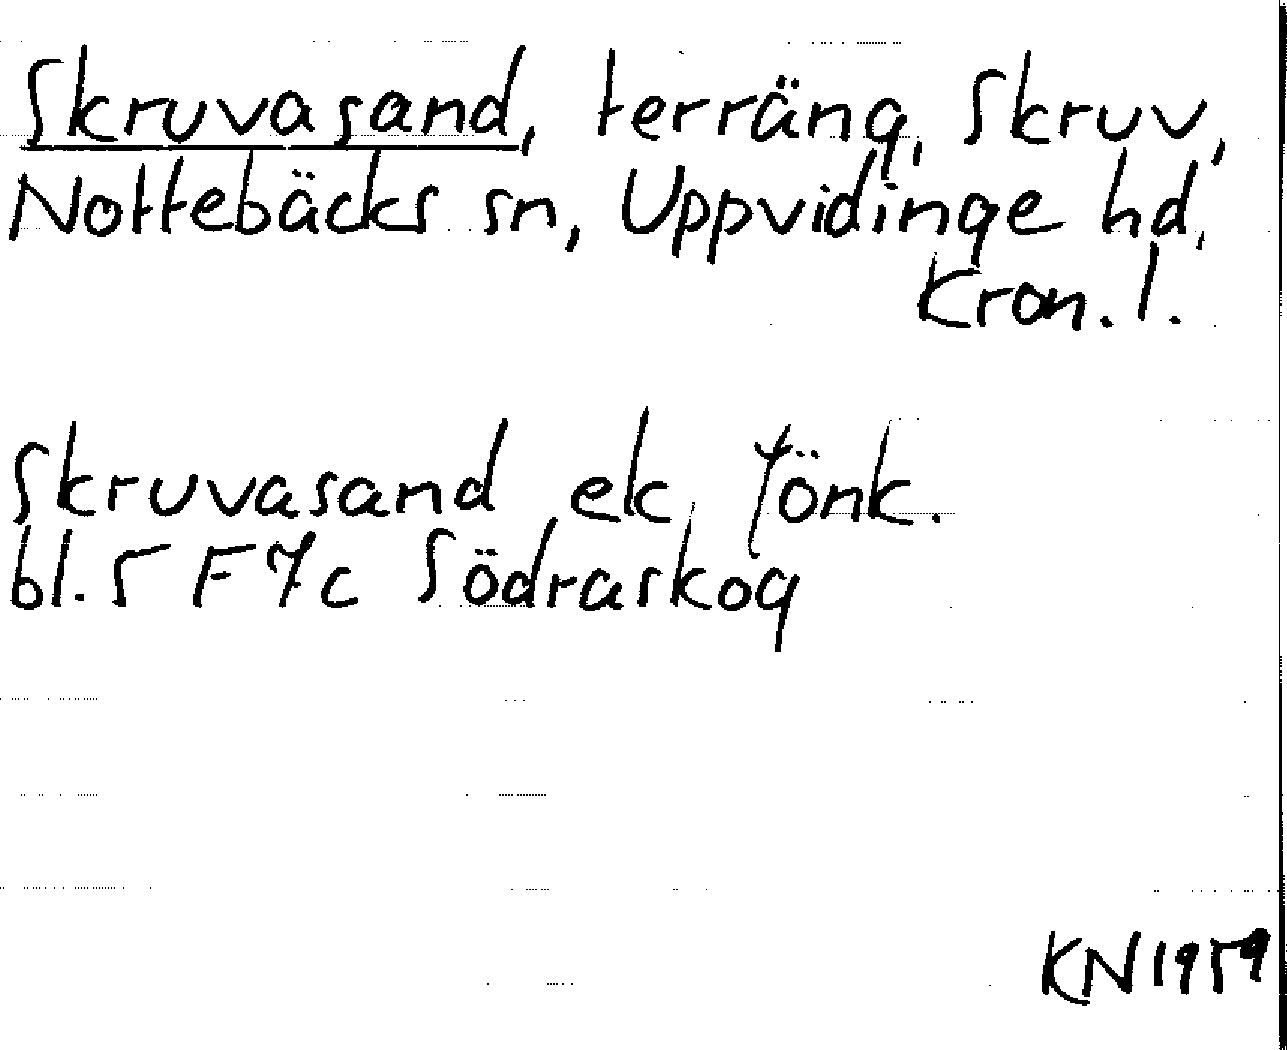 Skruvasand, terräng, Skruv,
Nottebäcks sn, Uppvidinge hd,
Kron. l.
Skruvasand ek fönk.
bl. 5 F 7c Södraskog
KN 1959